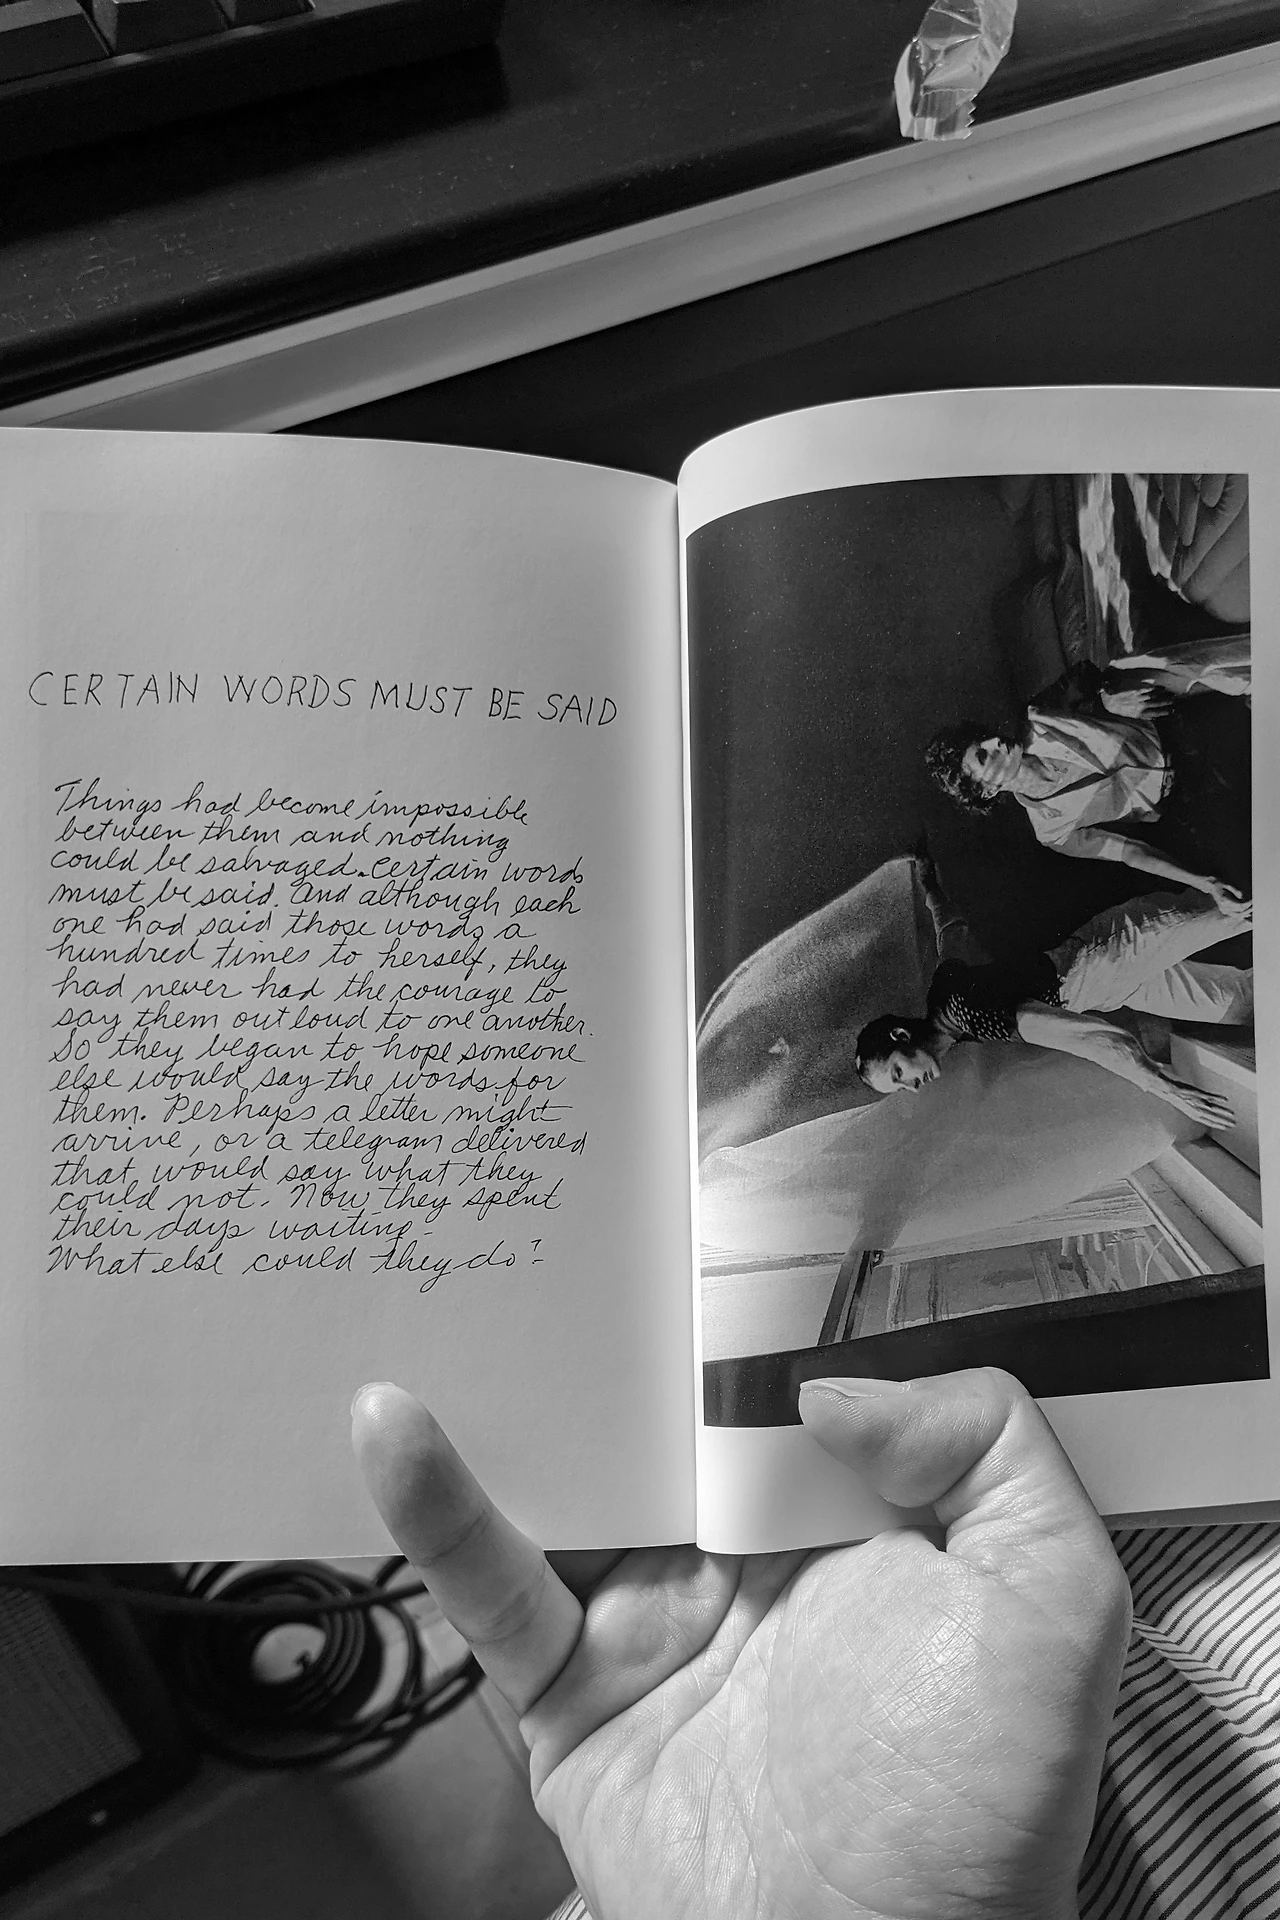 CERTAIN WORDS MUST BE SAID
Things had become impossible
between them and nothing
could be salvaged. Certain words
must be said. And although each
one had said those words a
hundred times to herself, they
had never had the courage to
say them out loud to one another.
So they began to hope someone
else would say the words for
them. Perhaps a letter might
arrive, or a telegram delivered
that would say what they
could not. Now they spent
their days waiting.
What else could they do?